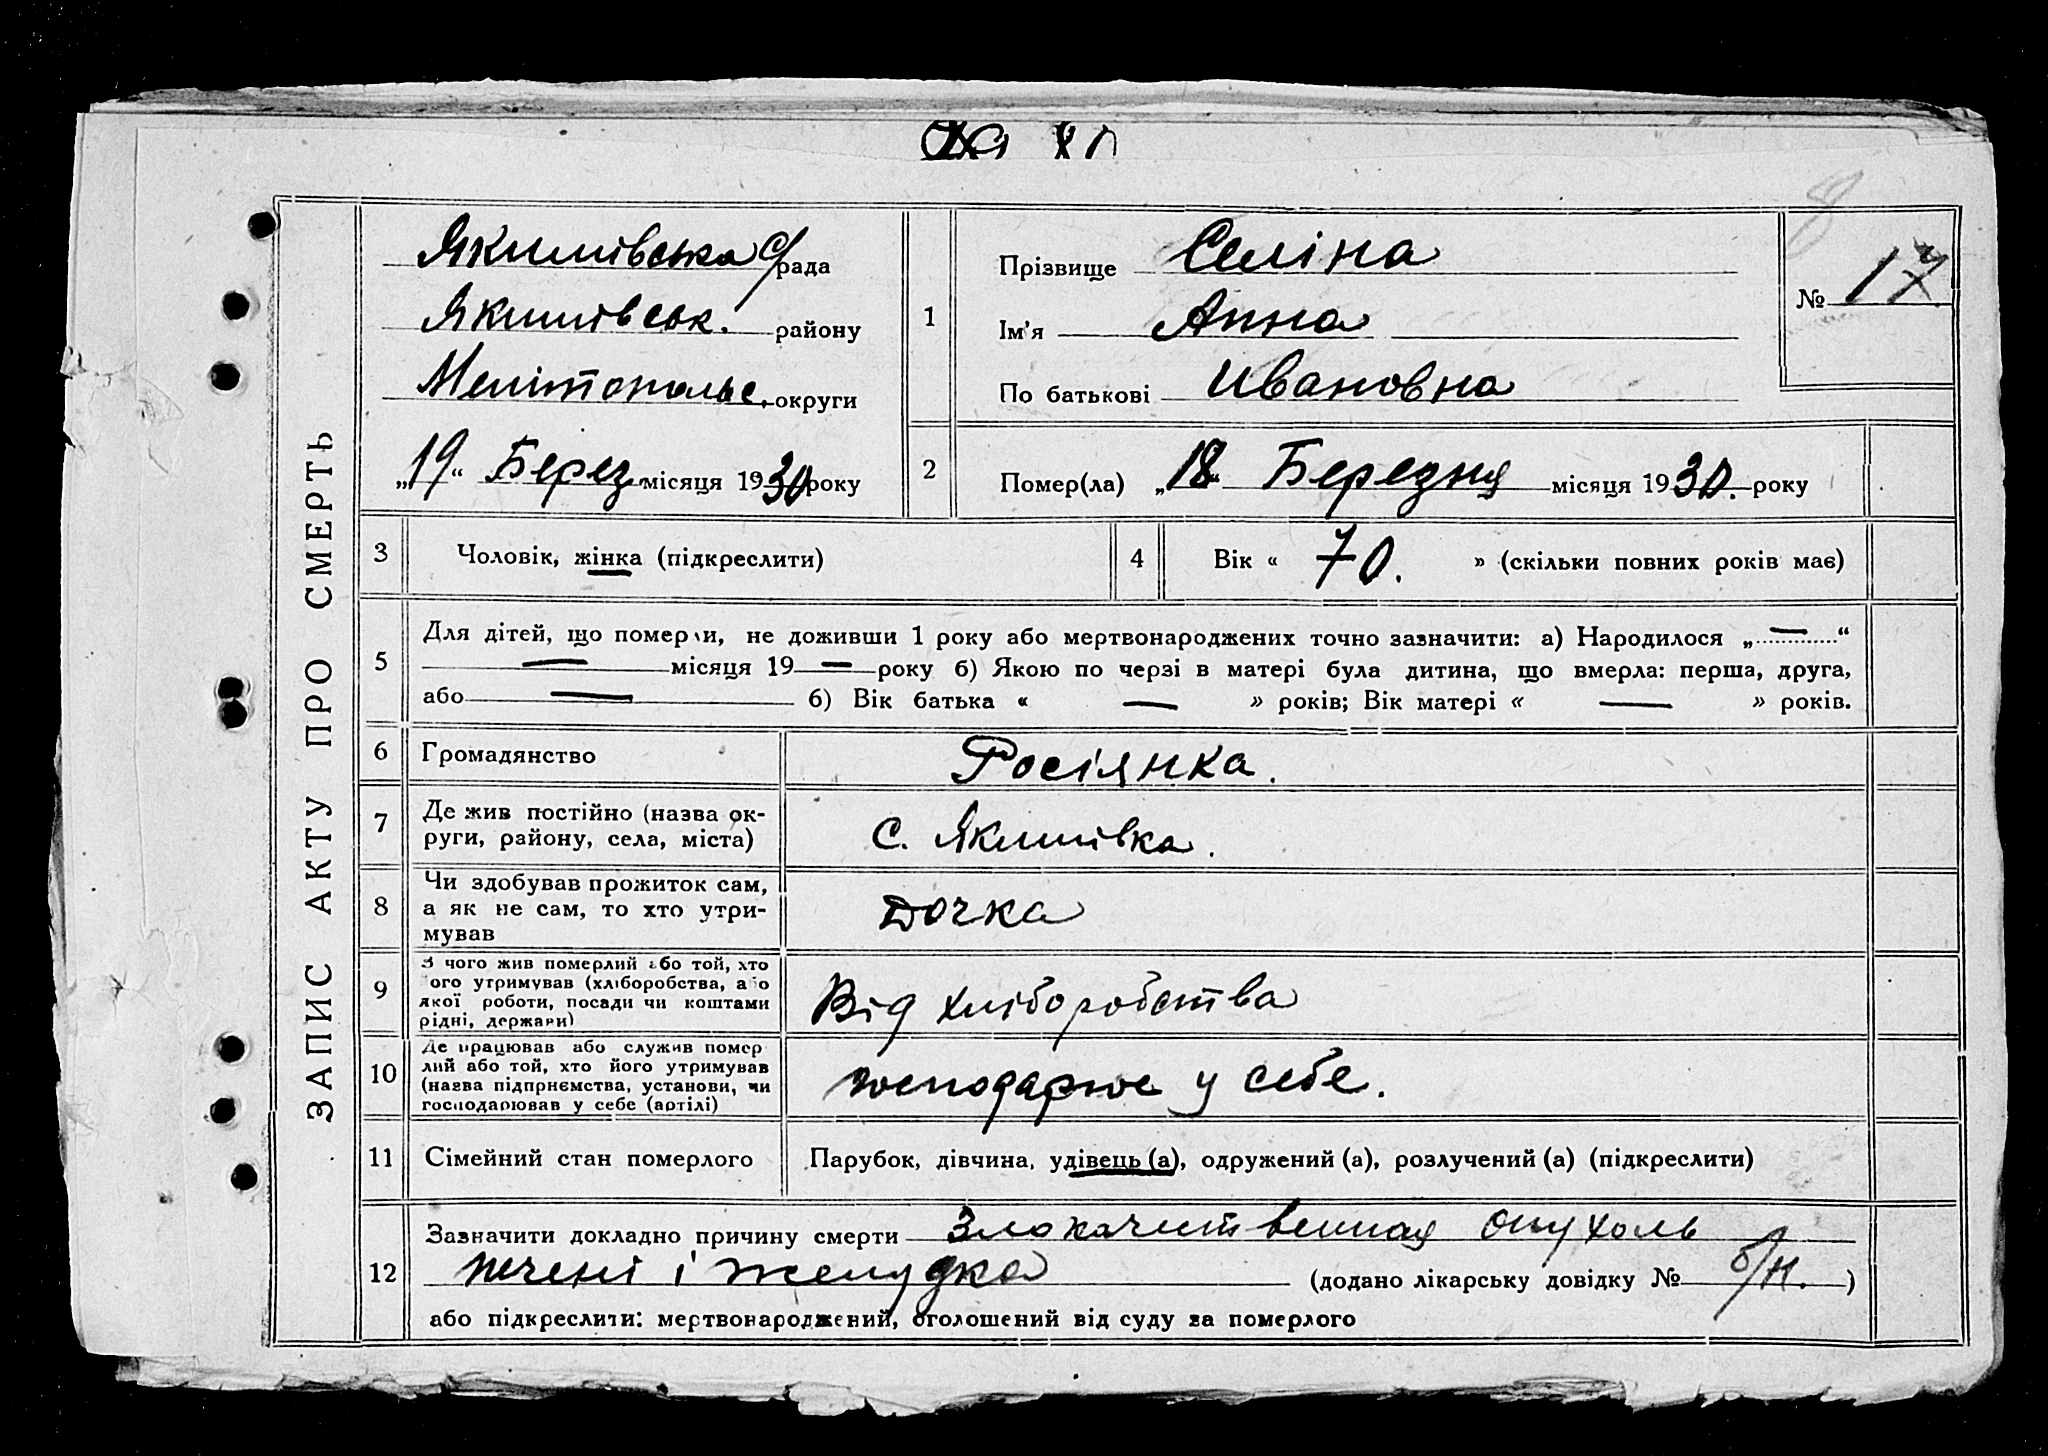 ЗАПИС АКТУ ПРО СМЕРТЬ
Якимівська с/рада
Якимівськ. району
Мелітопольс. округи
„19“ Берез місяця 1930 року
1
Прізвище Селіна
Ім’я Анна
По батькові Ивановна
№ 17
2
Помер(ла) „18“ Березня місяця 1930. року
3 Чоловік, жінка (підкреслити)
4 Вік « 70. » (скільки повних років має)
5
Для дітей, що померли, не доживши 1 року або мертвонароджених точно зазначити: а) Народилося „—“
— місяця 19 — року б) Якою по черзі в матері була дитина, що вмерла: перша, друга,
або — б) Вік батька « — » років; Вік матері « — » років.
6 Громадянство Росіянка.
7
Де жив постійно (назва ок-
руги, району, села, міста)
с. Якимівка.
8
Чи здобував прожиток сам,
а як не сам, то хто утри-
мував
дочка
9
З чого жив померлий або той, хто
його утримував (хліборобства, або
якої роботи, посади чи коштами
рідні, держави)
Від хліборобства
10
Де працював або служив помер
лий або той, хто його утримував
(назва підприємства, установи, чи
господарював у себе (артілі)
господарює у себе.
11 Сімейний стан померлого Парубок, дівчина, удівець (а), одружений (а), розлучений (а) (підкреслити)
12
Зазначити докладно причину смерти Злокачественная опухоль
печені і желудка (додано лікарську довідку № б/н. )
або підкреслити: мертвонароджений, оголошений від суду за померлого